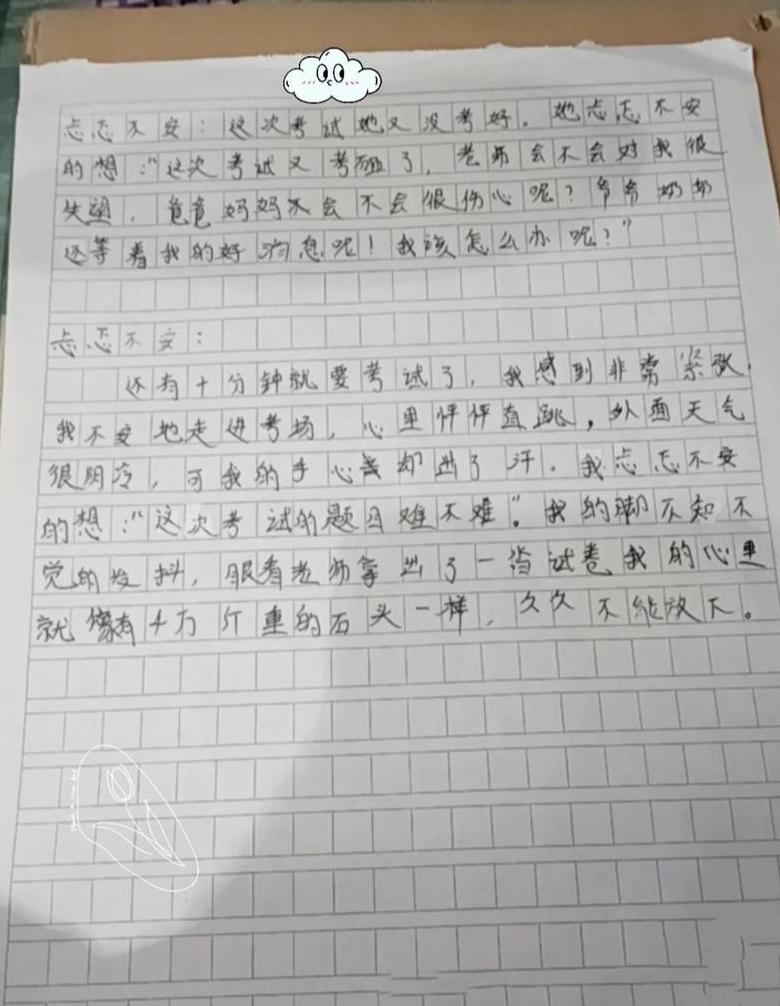 忐忑不安：这次考试她又没考好。她忐忑不安
的想："这次考试又考砸了，老师会不会对我很
失望，竟竟妈妈不会不会很伤心呢？爷爷奶奶
还等着我的好消息呢！我该怎么办呢？"
忐忑不安：
还有十分钟就要考试了，我感到非常紧张，
我不安地走进考场，心里怦怦直跳，外面天气
很阴冷，可我的手心却出了汗。我忐忑不安
的想："这次考试的题目难不难"。我的脚不知不
觉的发抖，眼看老师拿出了一沓试卷我的心里
就像有千万斤重的石头一样，久久不能放下。